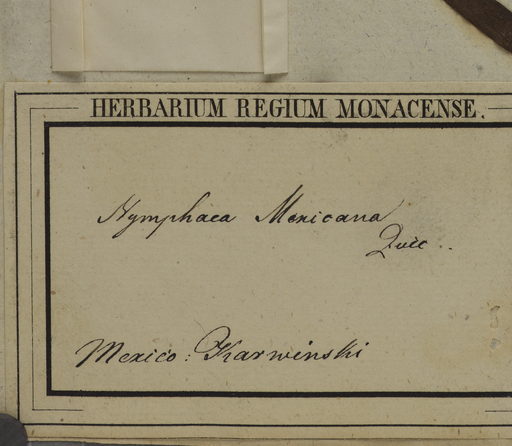 HERBARIUM REGIUM MONACENSE.
Nymphaea Mexicana
Mexico: Karwinski